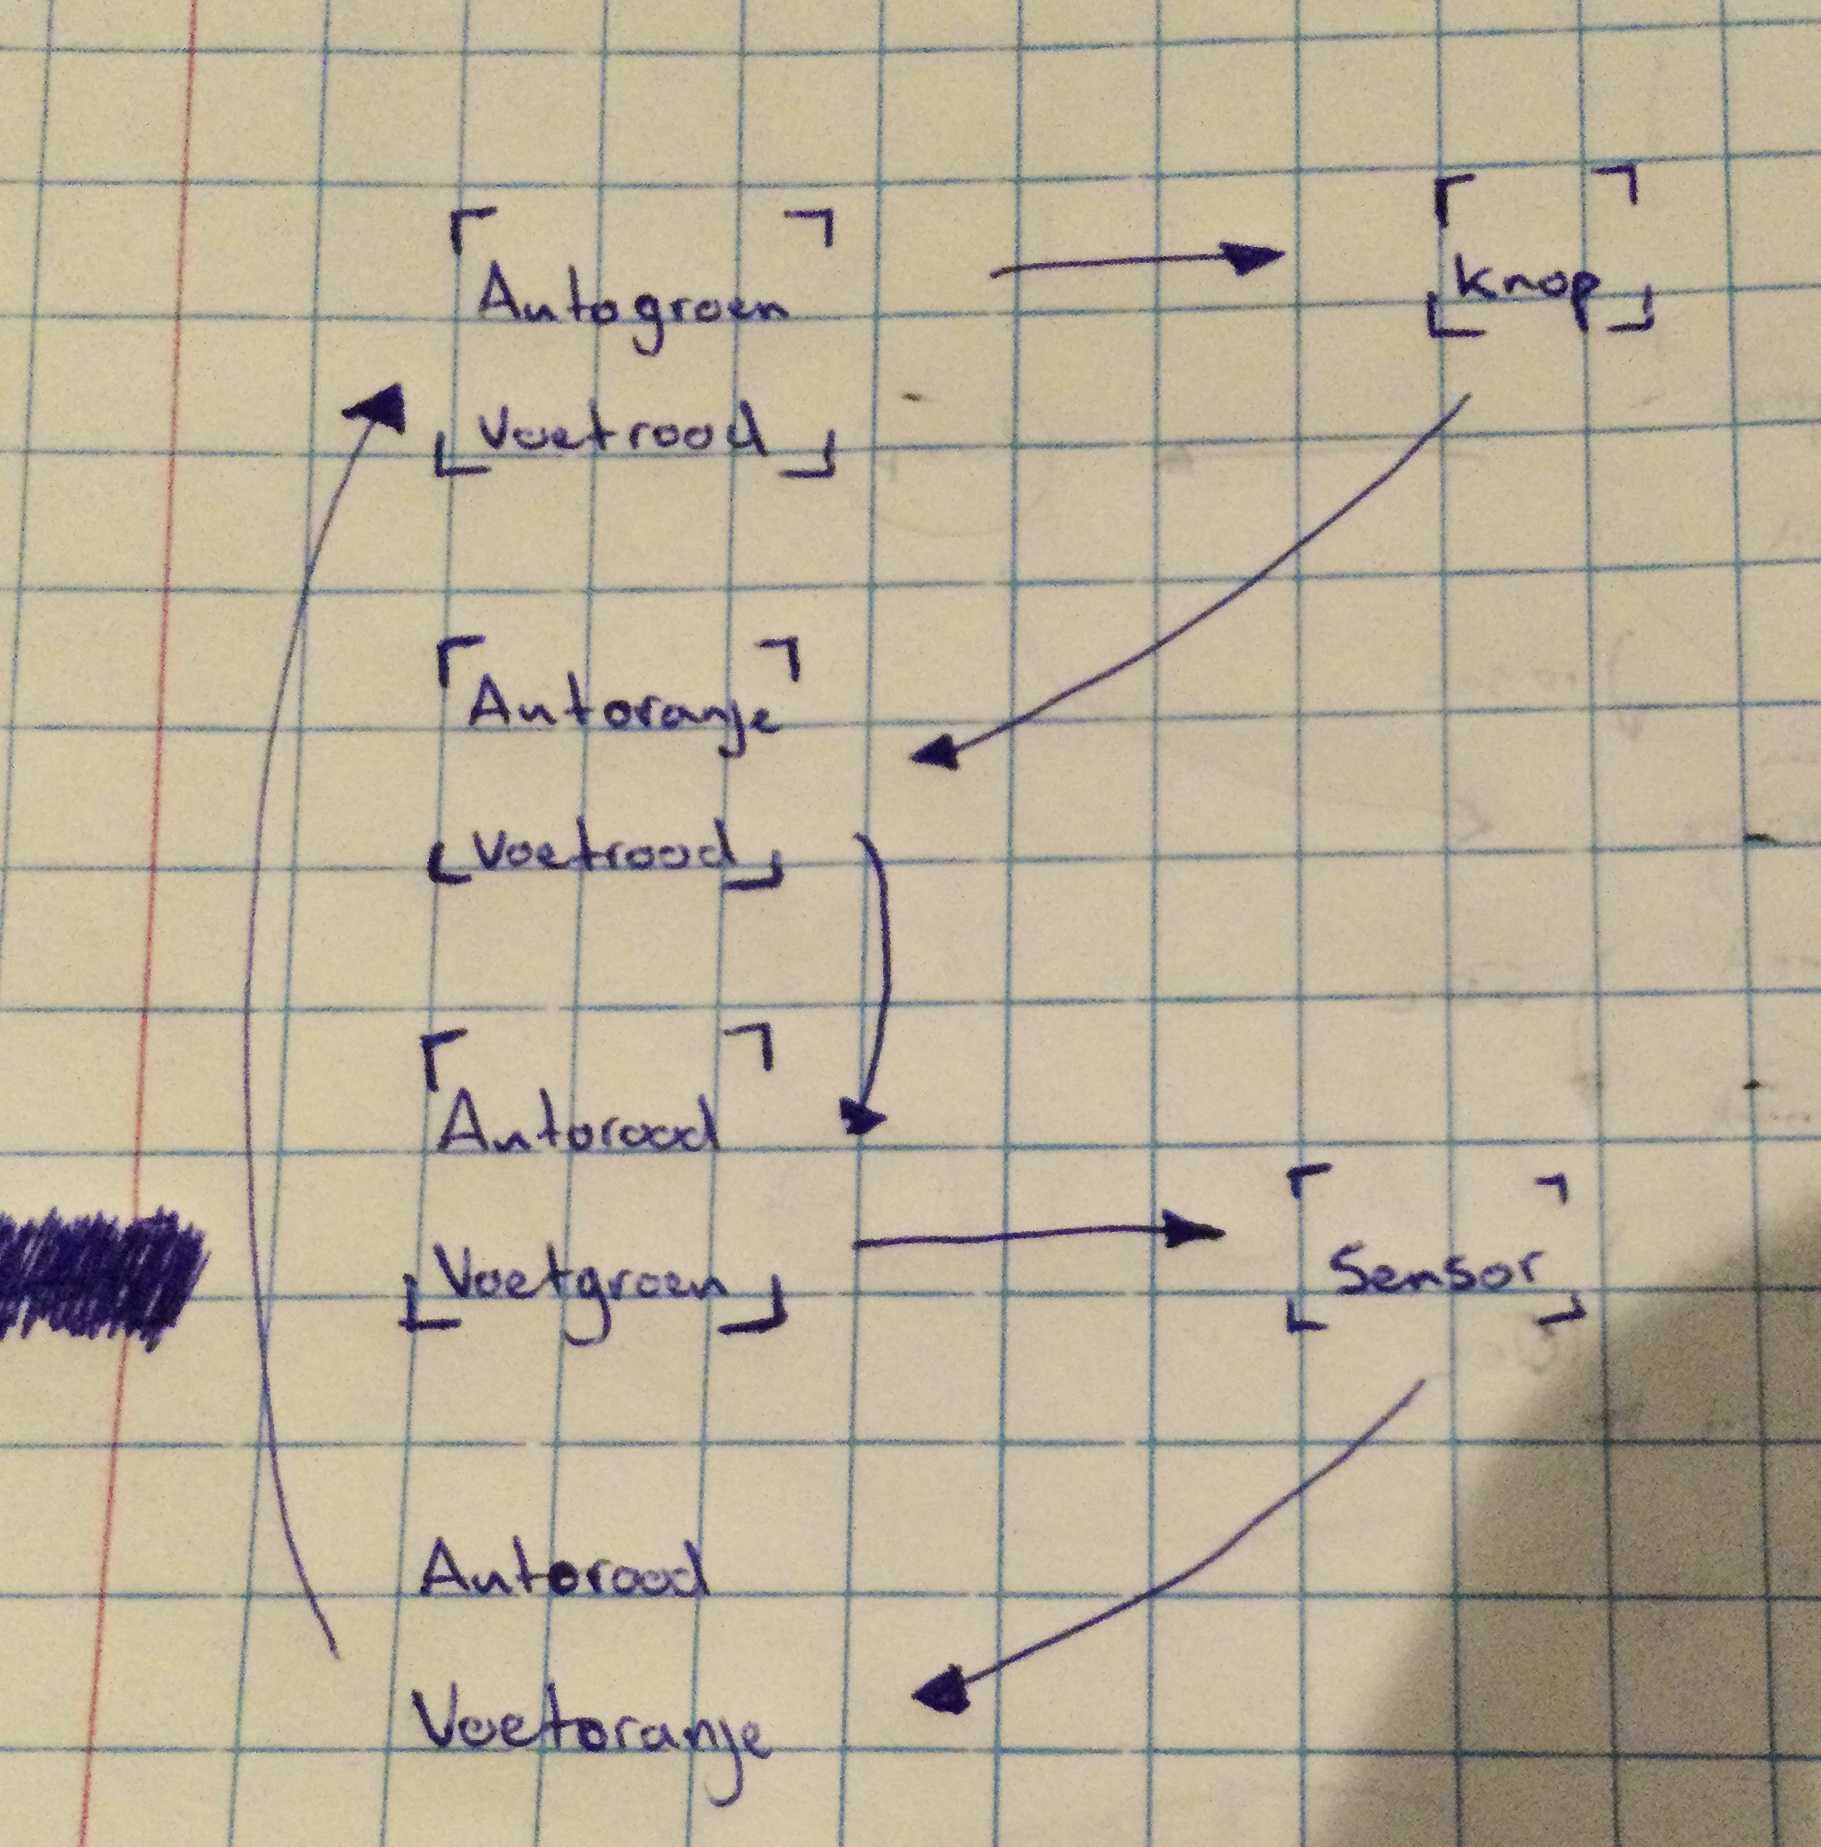 Autogroen
Knop
Voetrood
Autoranje
Voetrood
Autorood
Voetgroen
Sensor
Autorood
Voetoranje